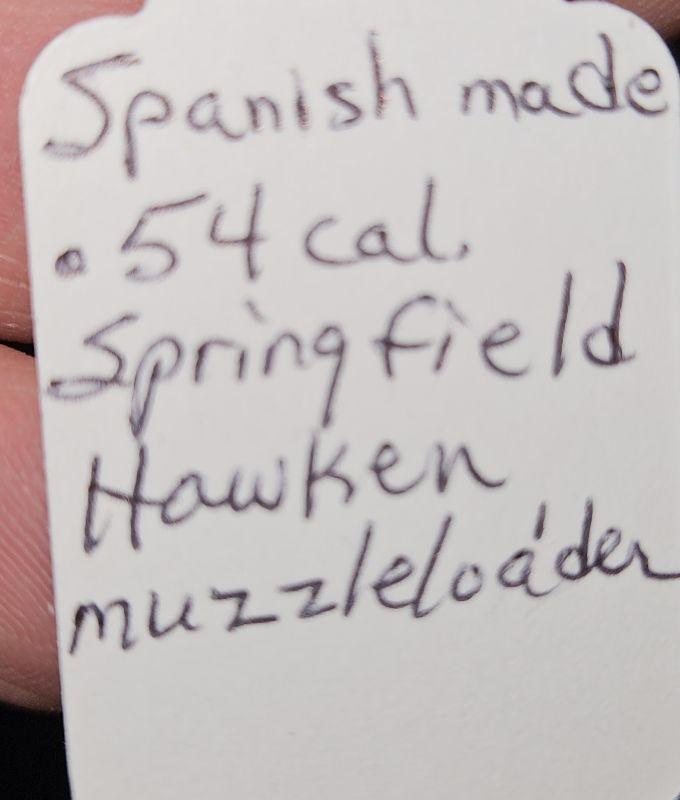 Spanish made
.54 cal.
Springfield
Hawken
muzzleloader